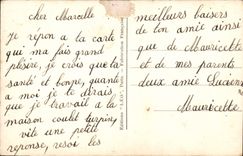 cher Marcelle
Je repon a la carte
qui ma fais grand
plésire, je crois que ta
santé et bonne, quante
a moi je te dirais
que je travail a la
maison coulet turpin,
vite une petit
reponse, resoi les
meilleurs baisers
de ton amie ainsi
que de Mauricette
et de mes parents
deux amie Lucienne
Mauricette